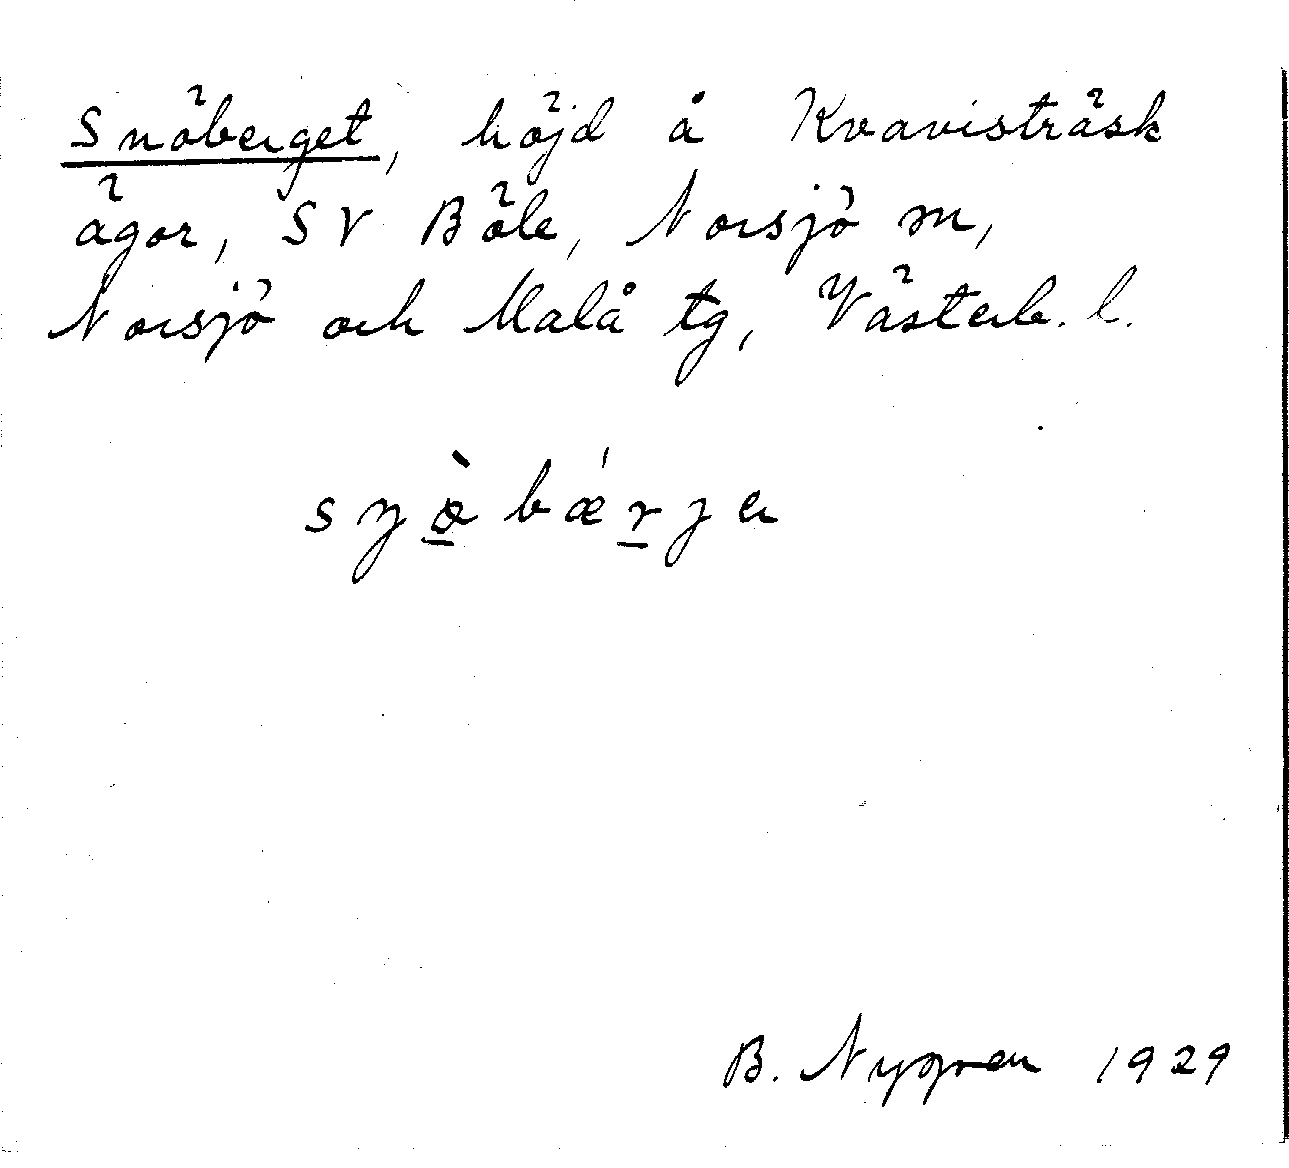 Snöberget, höjd å Kvavisträsk
ägor, SV Böle, Norsjö sn,
Norsjö och Malå tg, Västerb. l.
B. Nygren 1929